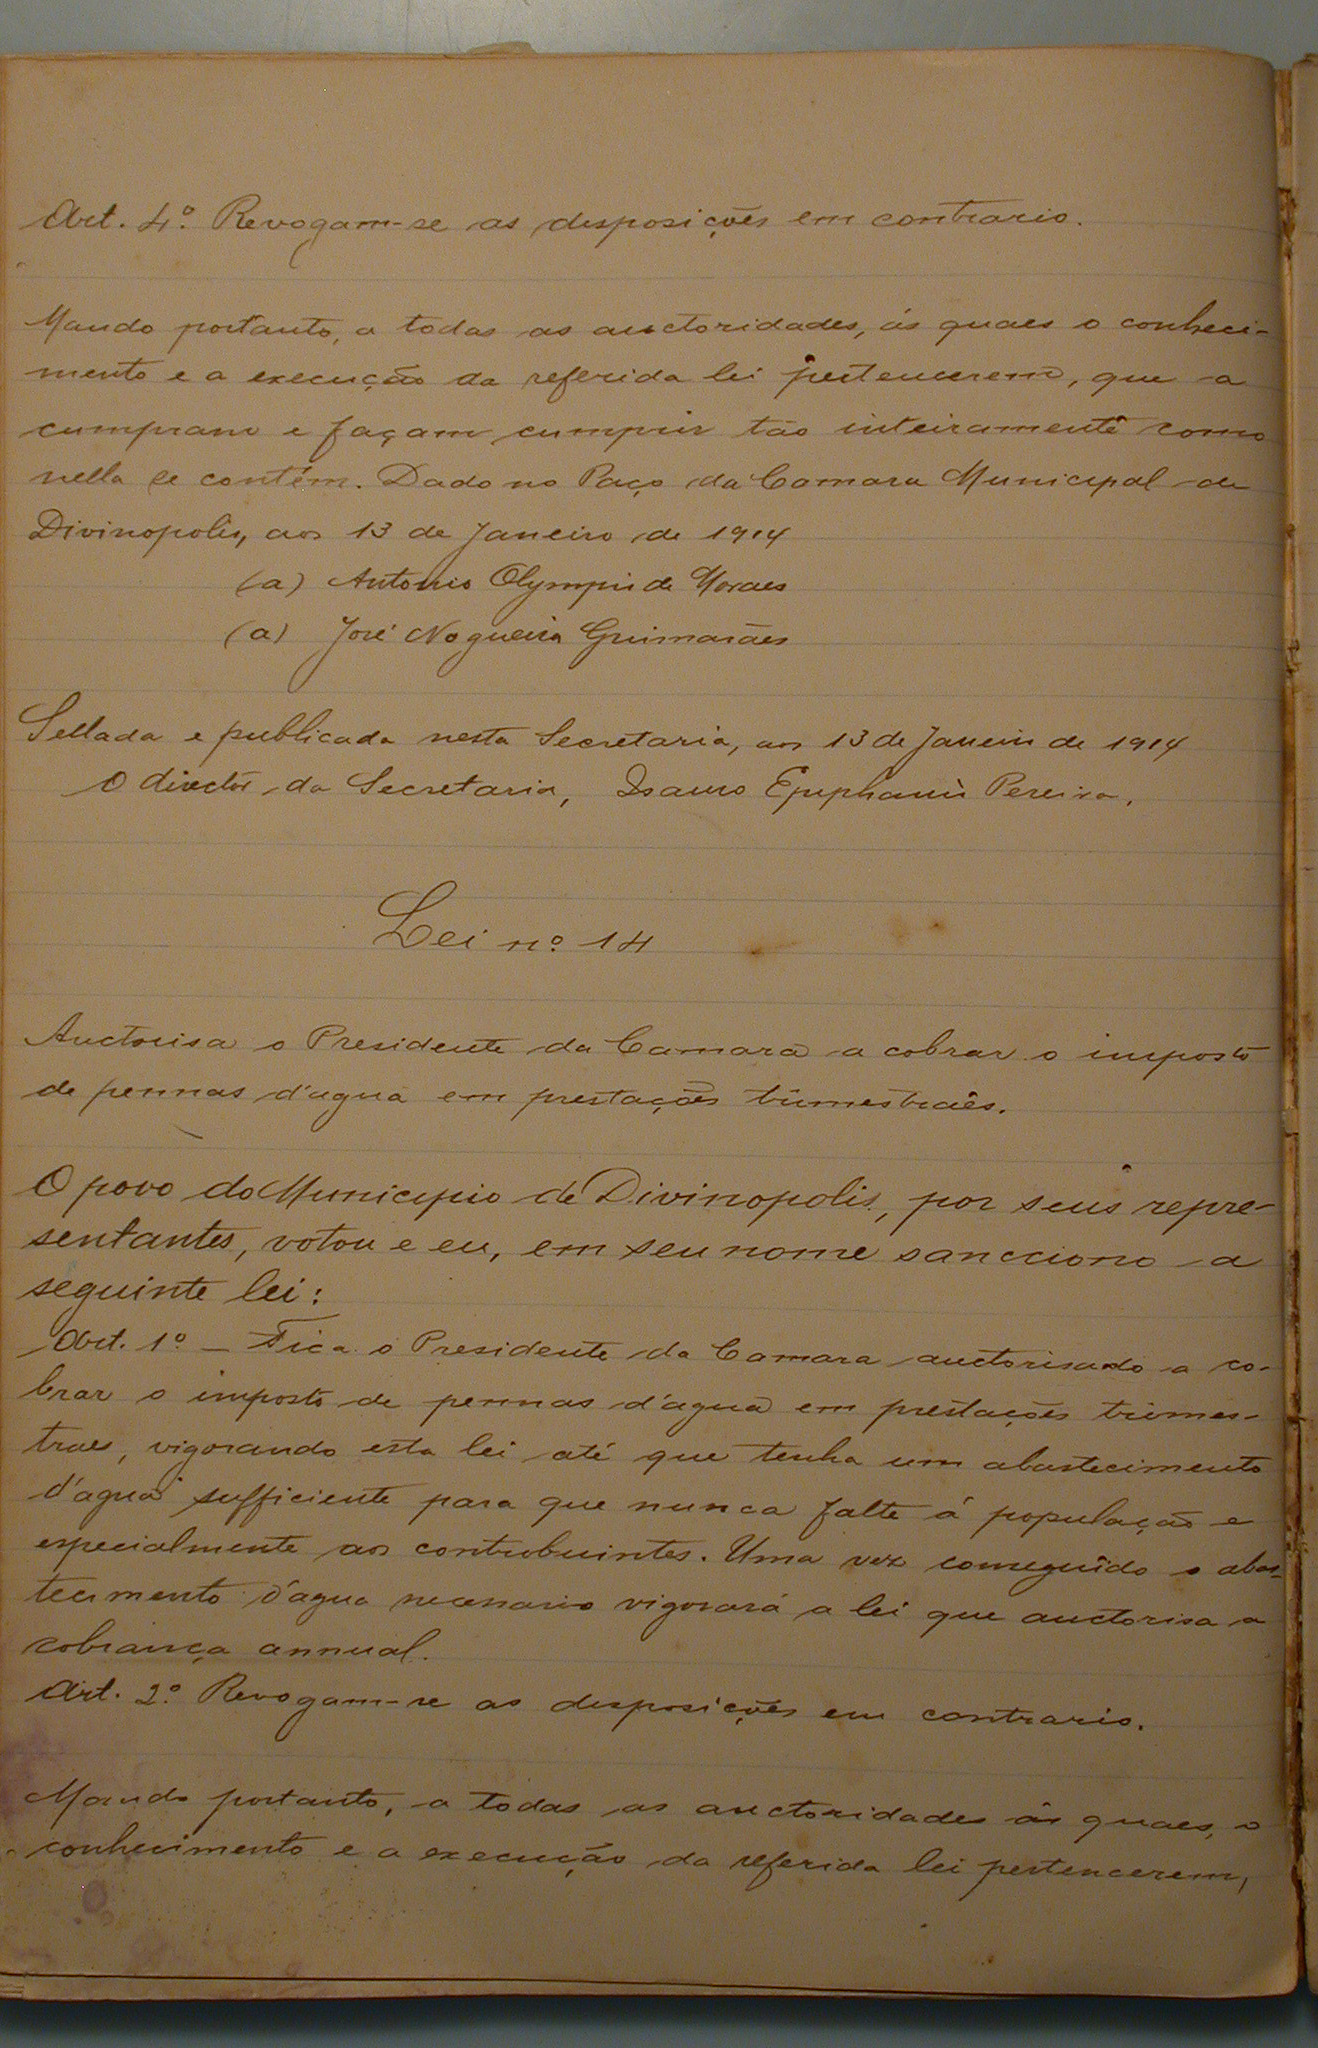 Art. 4º. Revogam-se as disposições em contrario.
Mando portanto, a todas as auctoridades, ás quaes o conheci-
mento e a execução da referida lei pertencerem, que a
cumpram e façam cumprir tão inteiramente como
nella se contém. Dado no Paço da Camara Municipal de
Divinopolis, aos 13 de Janeiro de 1914
(a) Antonio Olympio de Moraes
(a) José Nogueira Guimarães
Sellada e publicada nesta Secretaria, aos 13 de Janeiro de 1914
O director da Secretaria, Isauro Epiphanio Pereira.
Lei nº 14
Auctorisa o Presidente da Camara a cobrar o imposto
de pennas d'agua em prestações trimestraes.
O povo do Municipio de Divinopolis, por seus repre-
sentantes, votou e eu, em seu nome sancciono a
seguinte lei:
Art. 1º - Fica o Presidente da Camara auctorisado a co-
brar o imposto de pennas d'agua em prestações trimes-
traes, vigorando esta lei até que tenha um abastecimento
d'agua sufficiente para que nunca falte á população e
especialmente aos controbuintes. Uma vez conseguido o abas-
tecimento d'agua necessario vigorará a lei que auctorisa a
cobrança annual.
Art. 2º. Revogam-se as disposições em contrario.
Mando portanto, a todas as auctoridades ás quaes, o
conhecimento e a execução da referida lei pertencerem,